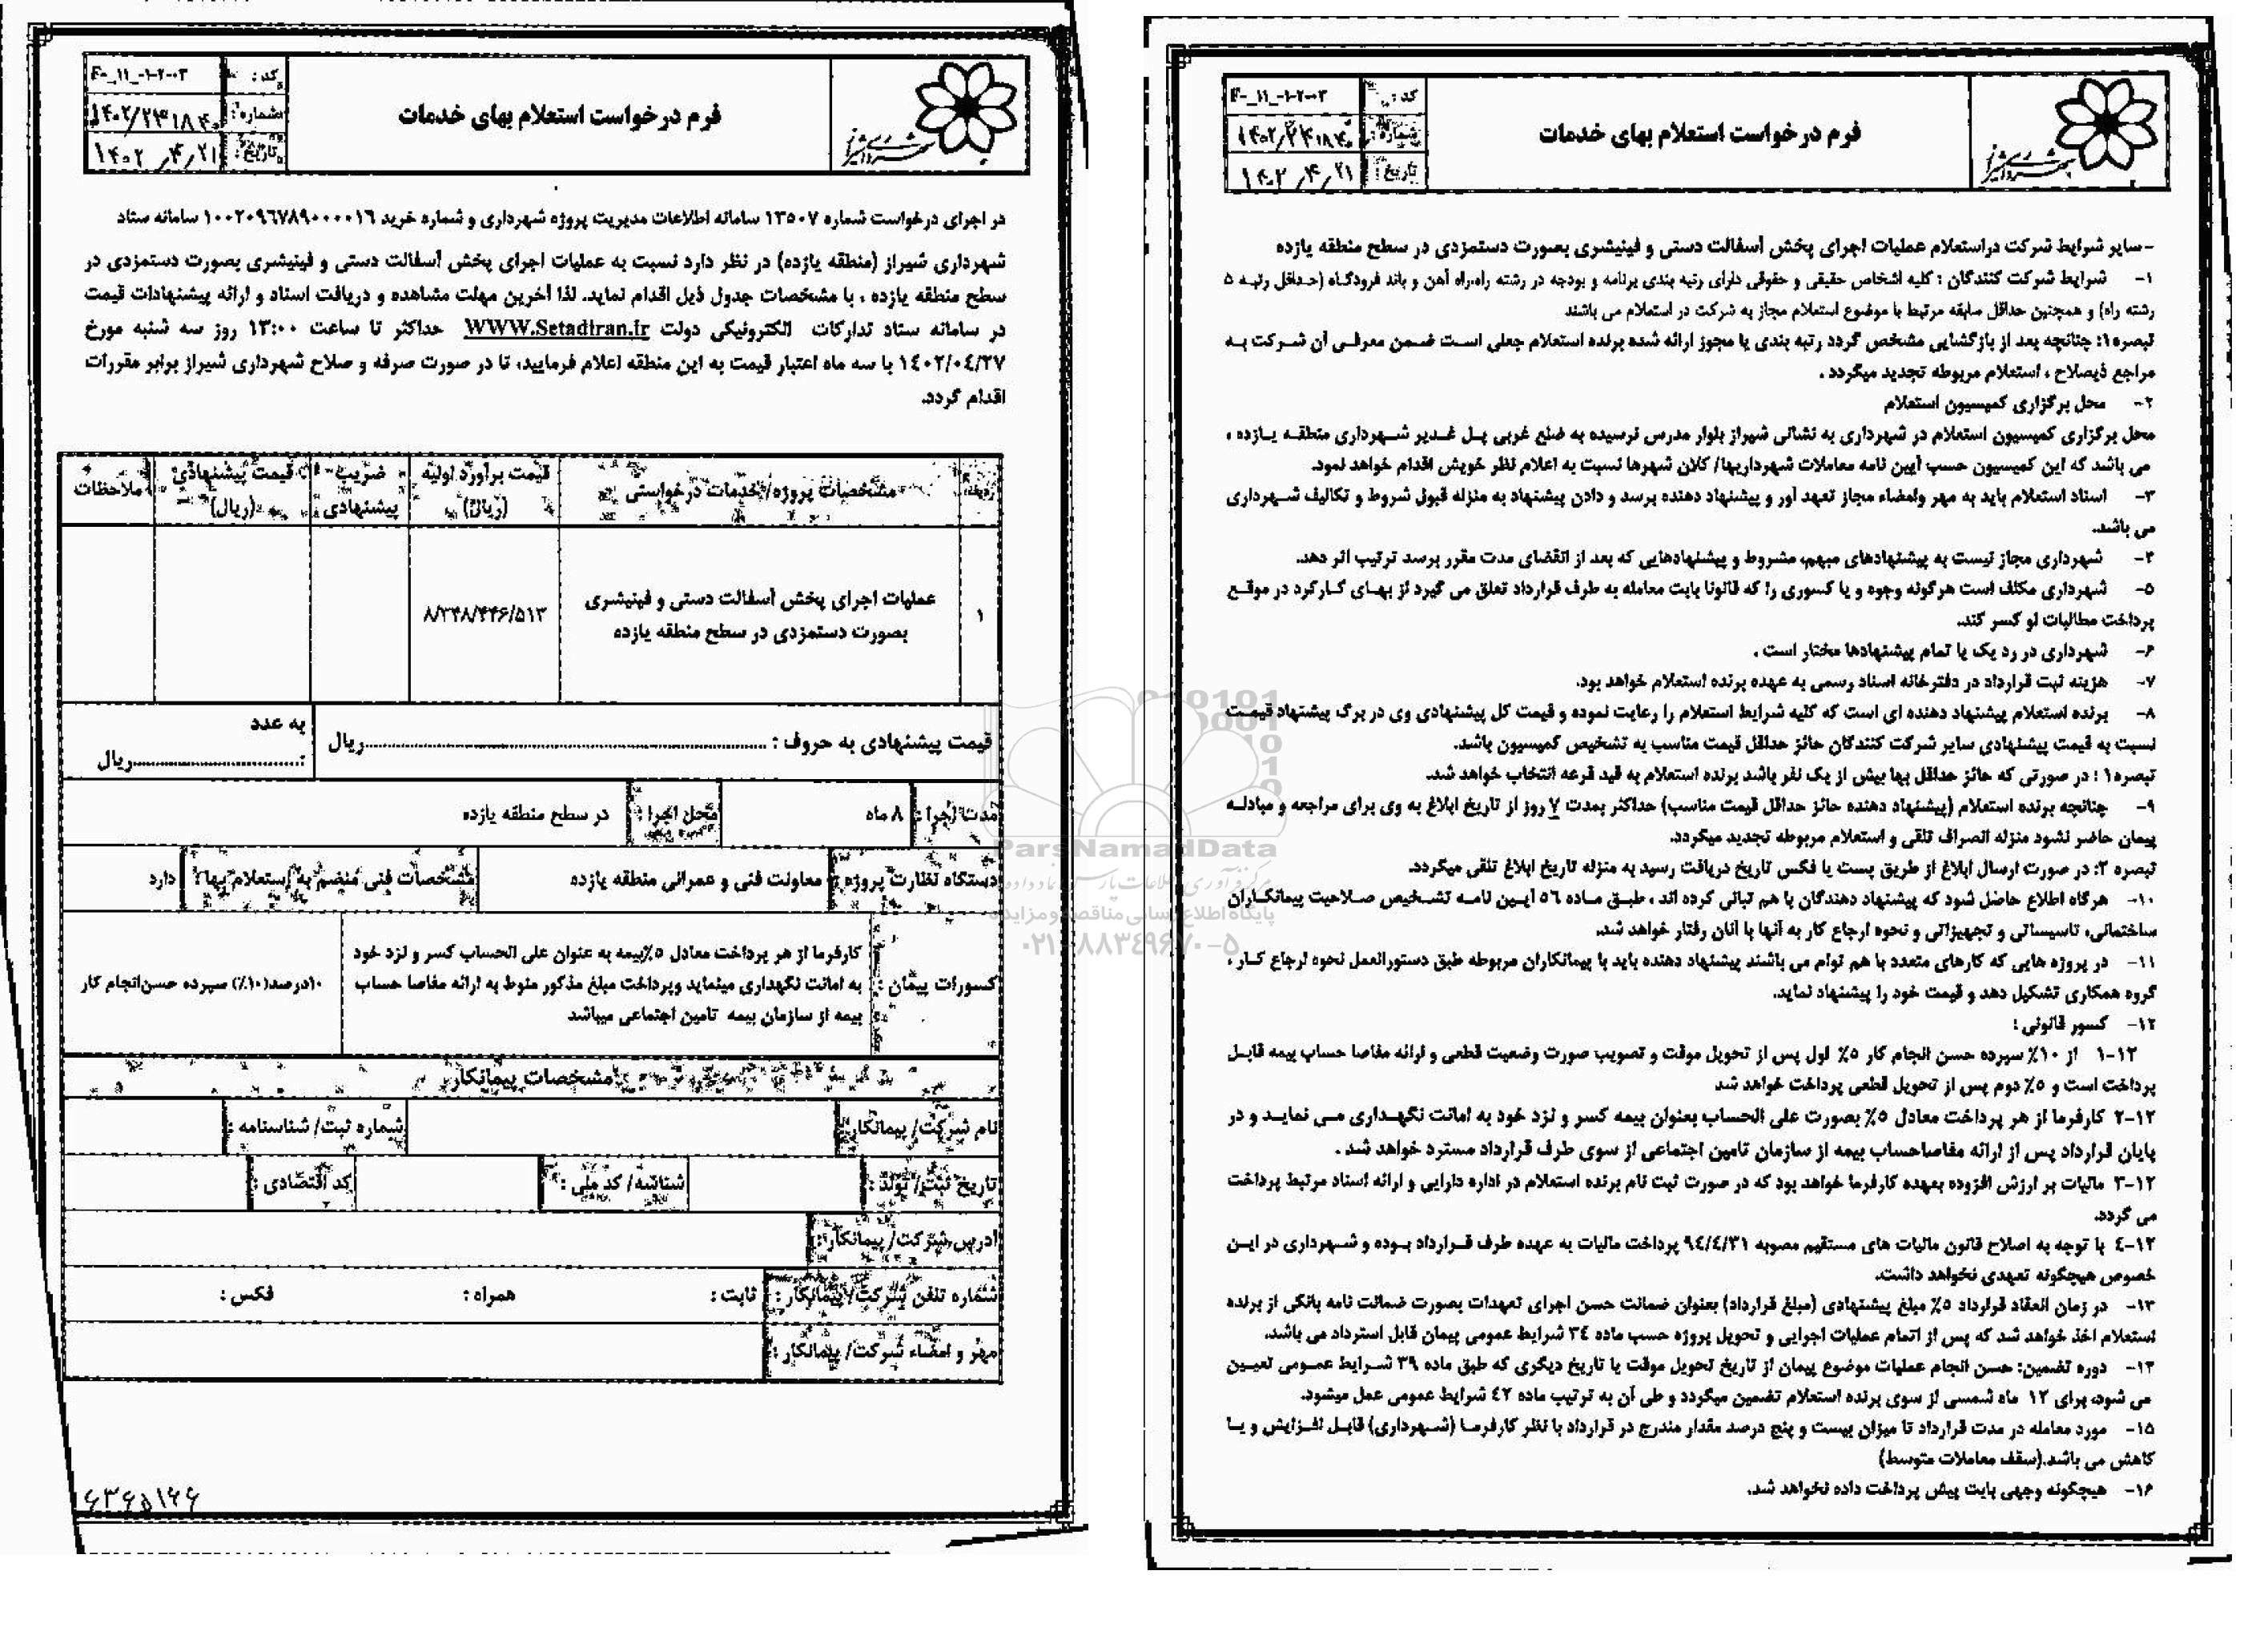 فرم درخواست استعلام بهای خدمات
کد:
F-_11_-1-2-03
شماره:
۱۴۰۲/۲۳۱۸۴۰
تاریخ:
۱۴۰۲/۴/۲۱
شهرداری شیراز
در اجرای درخواست شماره ۱۳۵۰۷ سامانه اطلاعات مدیریت پروژه شهرداری و شماره خرید ۱۰۰۲۰۹۶۷۸۹۰۰۰۰۱۶ سامانه ستاد
شهرداری شیراز (منطقه یازده) در نظر دارد نسبت به عملیات اجرای پخش آسفالت دستی و فینیشری بصورت دستمزدی در
سطح منطقه یازده ، با مشخصات جدول ذیل اقدام نماید. لذا آخرین مهلت مشاهده و دریافت اسناد و ارائه پیشنهادات قیمت
در سامانه ستاد تدارکات الکترونیکی دولت WWW.Setadiran.ir حداکثر تا ساعت ۱۳:۰۰ روز سه شنبه مورخ
۱۴۰۲/۰۴/۲۷ با سه ماه اعتبار قیمت به این منطقه اعلام فرمایید، تا در صورت صرفه و صلاح شهرداری شیراز برابر مقررات
اقدام گردد.
ردیف
مشخصات پروژه/ خدمات درخواستی
قیمت برآورد اولیه (ریال)
ضریب پیشنهادی
قیمت پیشنهادی (ریال)
ملاحظات
۱
عملیات اجرای پخش آسفالت دستی و فینیشری
بصورت دستمزدی در سطح منطقه یازده
۸/۳۴۸/۴۴۶/۵۱۳
قیمت پیشنهادی به حروف : ..........ریال
به عدد
:..........ریال
مدت اجرا : ۸ ماه
محل اجرا : در سطح منطقه یازده
دستگاه نظارت پروژه : معاونت فنی و عمرانی منطقه یازده
مشخصات فنی منضم به استعلام بها؟ دارد
کسورات پیمان :
کارفرما از هر پرداخت معادل ۵٪بیمه به عنوان علی الحساب کسر و نزد خود
به امانت نگهداری مینماید وپرداخت مبلغ مذکور منوط به ارائه مفاصا حساب
بیمه از سازمان بیمه تامین اجتماعی میباشد
۱۰درصد(۱۰٪) سپرده حسن‌انجام کار
مشخصات پیمانکار
نام شرکت/ پیمانکار:
شماره ثبت/ شناسنامه :
تاریخ ثبت/ تولد :
شناسه/ کد ملی :
کد اقتصادی :
آدرس شرکت/ پیمانکار:
شماره تلفن شرکت/ پیمانکار : ثابت : همراه : فکس :
مهر و امضاء شرکت/ پیمانکار :
فرم درخواست استعلام بهای خدمات
کد :
F-_11_-1-2-03
شماره:
۱۴۰۲/۲۳۱۸۴۰
تاریخ:
۱۴۰۲/۴/۲۱
شهرداری شیراز
-سایر شرایط شرکت دراستعلام عملیات اجرای پخش آسفالت دستی و فینیشری بصورت دستمزدی در سطح منطقه یازده
۱- شرایط شرکت کنندگان : کلیه اشخاص حقیقی و حقوقی دارای رتبه بندی برنامه و بودجه در رشته راه،راه آهن و باند فرودگاه (حداقل رتبه ۵
رشته راه) و همچنین حداقل سابقه مرتبط با موضوع استعلام مجاز به شرکت در استعلام می باشند
تبصره۱: چنانچه بعد از بازگشایی مشخص گردد رتبه بندی یا مجوز ارائه شده برنده استعلام جعلی است ضمن معرفی آن شرکت به
مراجع ذیصلاح ، استعلام مربوطه تجدید میگردد .
۲- محل برگزاری کمیسیون استعلام
محل برگزاری کمیسیون استعلام در شهرداری به نشانی شیراز بلوار مدرس نرسیده به ضلع غربی پل غدیر شهرداری منطقه یازده ،
می باشد که این کمیسیون حسب آیین نامه معاملات شهرداریها/ کلان شهرها نسبت به اعلام نظر خویش اقدام خواهد نمود.
۳- اسناد استعلام باید به مهر وامضاء مجاز تعهد آور و پیشنهاد دهنده برسد و دادن پیشنهاد به منزله قبول شروط و تکالیف شهرداری
می باشد.
۴- شهرداری مجاز نیست به پیشنهادهای مبهم، مشروط و پیشنهادهایی که بعد از انقضای مدت مقرر برسد ترتیب اثر دهد.
۵- شهرداری مکلف است هرگونه وجوه و یا کسوری را که قانونا بابت معامله به طرف قرارداد تعلق می گیرد از بهای کارکرد در موقع
پرداخت مطالبات او کسر کند.
۶- شهرداری در رد یک یا تمام پیشنهادها مختار است .
۷- هزینه ثبت قرارداد در دفترخانه اسناد رسمی به عهده برنده استعلام خواهد بود.
۸- برنده استعلام پیشنهاد دهنده ای است که کلیه شرایط استعلام را رعایت نموده و قیمت کل پیشنهادی وی در برگ پیشنهاد قیمت
نسبت به قیمت پیشنهادی سایر شرکت کنندگان حائز حداقل قیمت مناسب به تشخیص کمیسیون باشد.
تبصره۱ : در صورتی که حائز حداقل بها بیش از یک نفر باشد برنده استعلام به قید قرعه انتخاب خواهد شد.
۹- چنانچه برنده استعلام (پیشنهاد دهنده حائز حداقل قیمت مناسب) حداکثر بمدت ۷ روز از تاریخ ابلاغ به وی برای مراجعه و مبادله
پیمان حاضر نشود منزله انصراف تلقی و استعلام مربوطه تجدید میگردد.
تبصره ۲: در صورت ارسال ابلاغ از طریق پست یا فکس تاریخ دریافت رسید به منزله تاریخ ابلاغ تلقی میگردد.
۱۰- هرگاه اطلاع حاصل شود که پیشنهاد دهندگان با هم تبانی کرده اند ، طبق ماده ۵۶ آیین نامه تشخیص صلاحیت پیمانکاران
ساختمانی، تاسیساتی و تجهیزاتی و نحوه ارجاع کار به آنها با آنان رفتار خواهد شد.
۱۱- در پروژه هایی که کارهای متعدد با هم توام می باشند پیشنهاد دهنده باید با پیمانکاران مربوطه طبق دستورالعمل نحوه ارجاع کار ،
گروه همکاری تشکیل دهد و قیمت خود را پیشنهاد نماید.
۱۲- کسور قانونی :
۱۲-۱ از ۱۰٪ سپرده حسن انجام کار ۵٪ اول پس از تحویل موقت و تصویب صورت وضعیت قطعی و ارائه مفاصا حساب بیمه قابل
پرداخت است و ۵٪ دوم پس از تحویل قطعی پرداخت خواهد شد
۱۲-۲ کارفرما از هر پرداخت معادل ۵٪ بصورت علی الحساب بعنوان بیمه کسر و نزد خود به امانت نگهداری می نماید و در
پایان قرارداد پس از ارائه مفاصاحساب بیمه از سازمان تامین اجتماعی از سوی طرف قرارداد مسترد خواهد شد .
۱۲-۳ مالیات بر ارزش افزوده بعهده کارفرما خواهد بود که در صورت ثبت نام برنده استعلام در اداره دارایی و ارائه اسناد مرتبط پرداخت
می گردد.
۱۲-۴ با توجه به اصلاح قانون مالیات های مستقیم مصوبه ۹۴/۴/۳۱ پرداخت مالیات به عهده طرف قرارداد بوده و شهرداری در این
خصوص هیچگونه تعهدی نخواهد داشت.
۱۳- در زمان انعقاد قرارداد ۵٪ مبلغ پیشنهادی (مبلغ قرارداد) بعنوان ضمانت حسن اجرای تعهدات بصورت ضمانت نامه بانکی از برنده
استعلام اخذ خواهد شد که پس از اتمام عملیات اجرایی و تحویل پروژه حسب ماده ۳۴ شرایط عمومی پیمان قابل استرداد می باشد.
۱۴- دوره تضمین: حسن انجام عملیات موضوع پیمان از تاریخ تحویل موقت یا تاریخ دیگری که طبق ماده ۳۹ شرایط عمومی تعیین
می شود، برای ۱۲ ماه شمسی از سوی برنده استعلام تضمین میگردد و طی آن به ترتیب ماده ۴۲ شرایط عمومی عمل میشود.
۱۵- مورد معامله در مدت قرارداد تا میزان بیست و پنج درصد مقدار مندرج در قرارداد با نظر کارفرما (شهرداری) قابل افزایش و یا
کاهش می باشد.(سقف معاملات متوسط)
۱۶- هیچگونه وجهی بابت پیش پرداخت داده نخواهد شد.
ParsNamadData
پایگاه اطلاع رسانی مناقصه و مزایده
۰۲۱-۸۸۳۴۹۶۷۰-۵